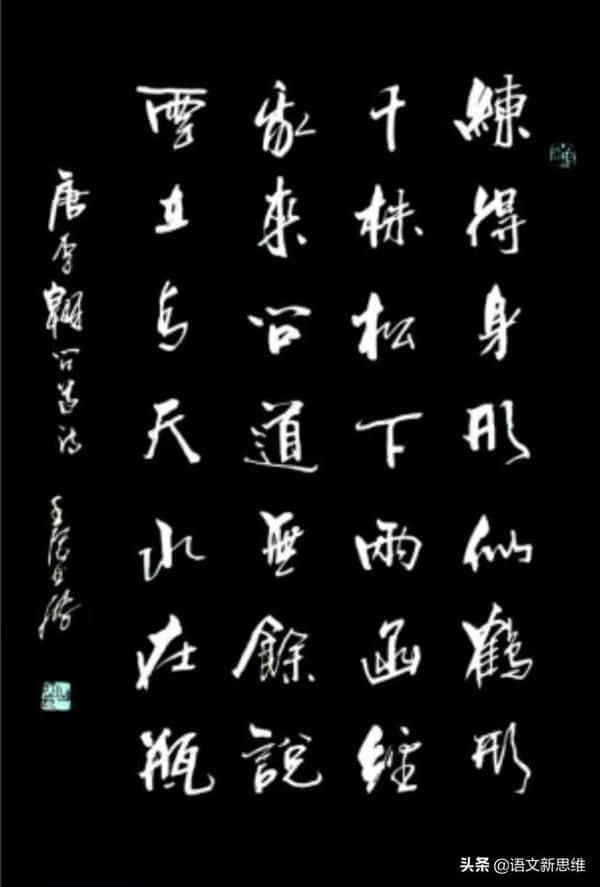 練得身形似鶴形
千株松下兩函經
我來問道無餘說
雲在青天水在瓶
唐李翱問道詩 王
头条 @语文新思维